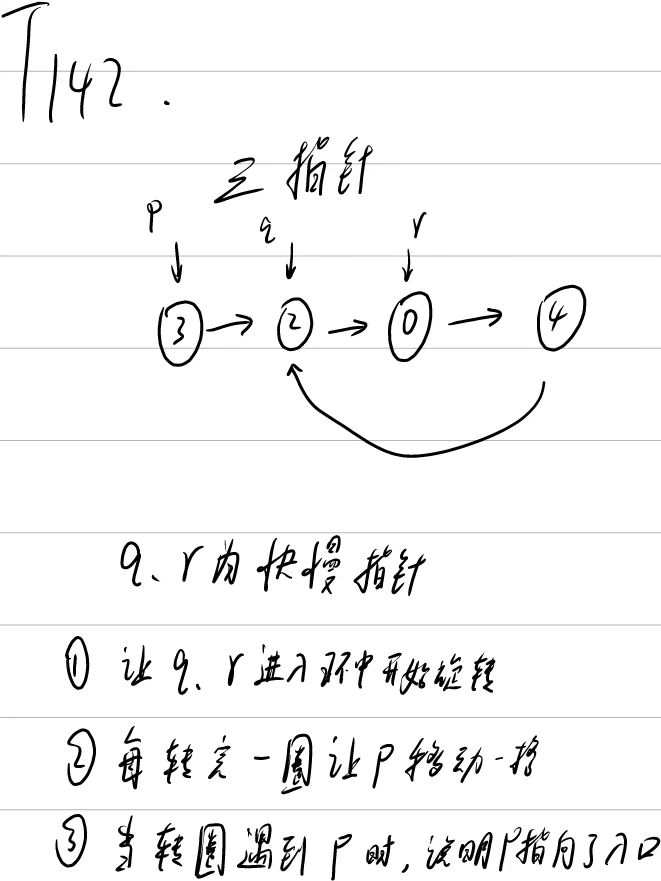 T142.
三指针
p q r
3 → 2 → 0 → 4
q、r为快慢指针
① 让q、r进入环中开始旋转
② 每转完一圈让p移动一格
③ 当转圈遇到p时，说明p指向了入口